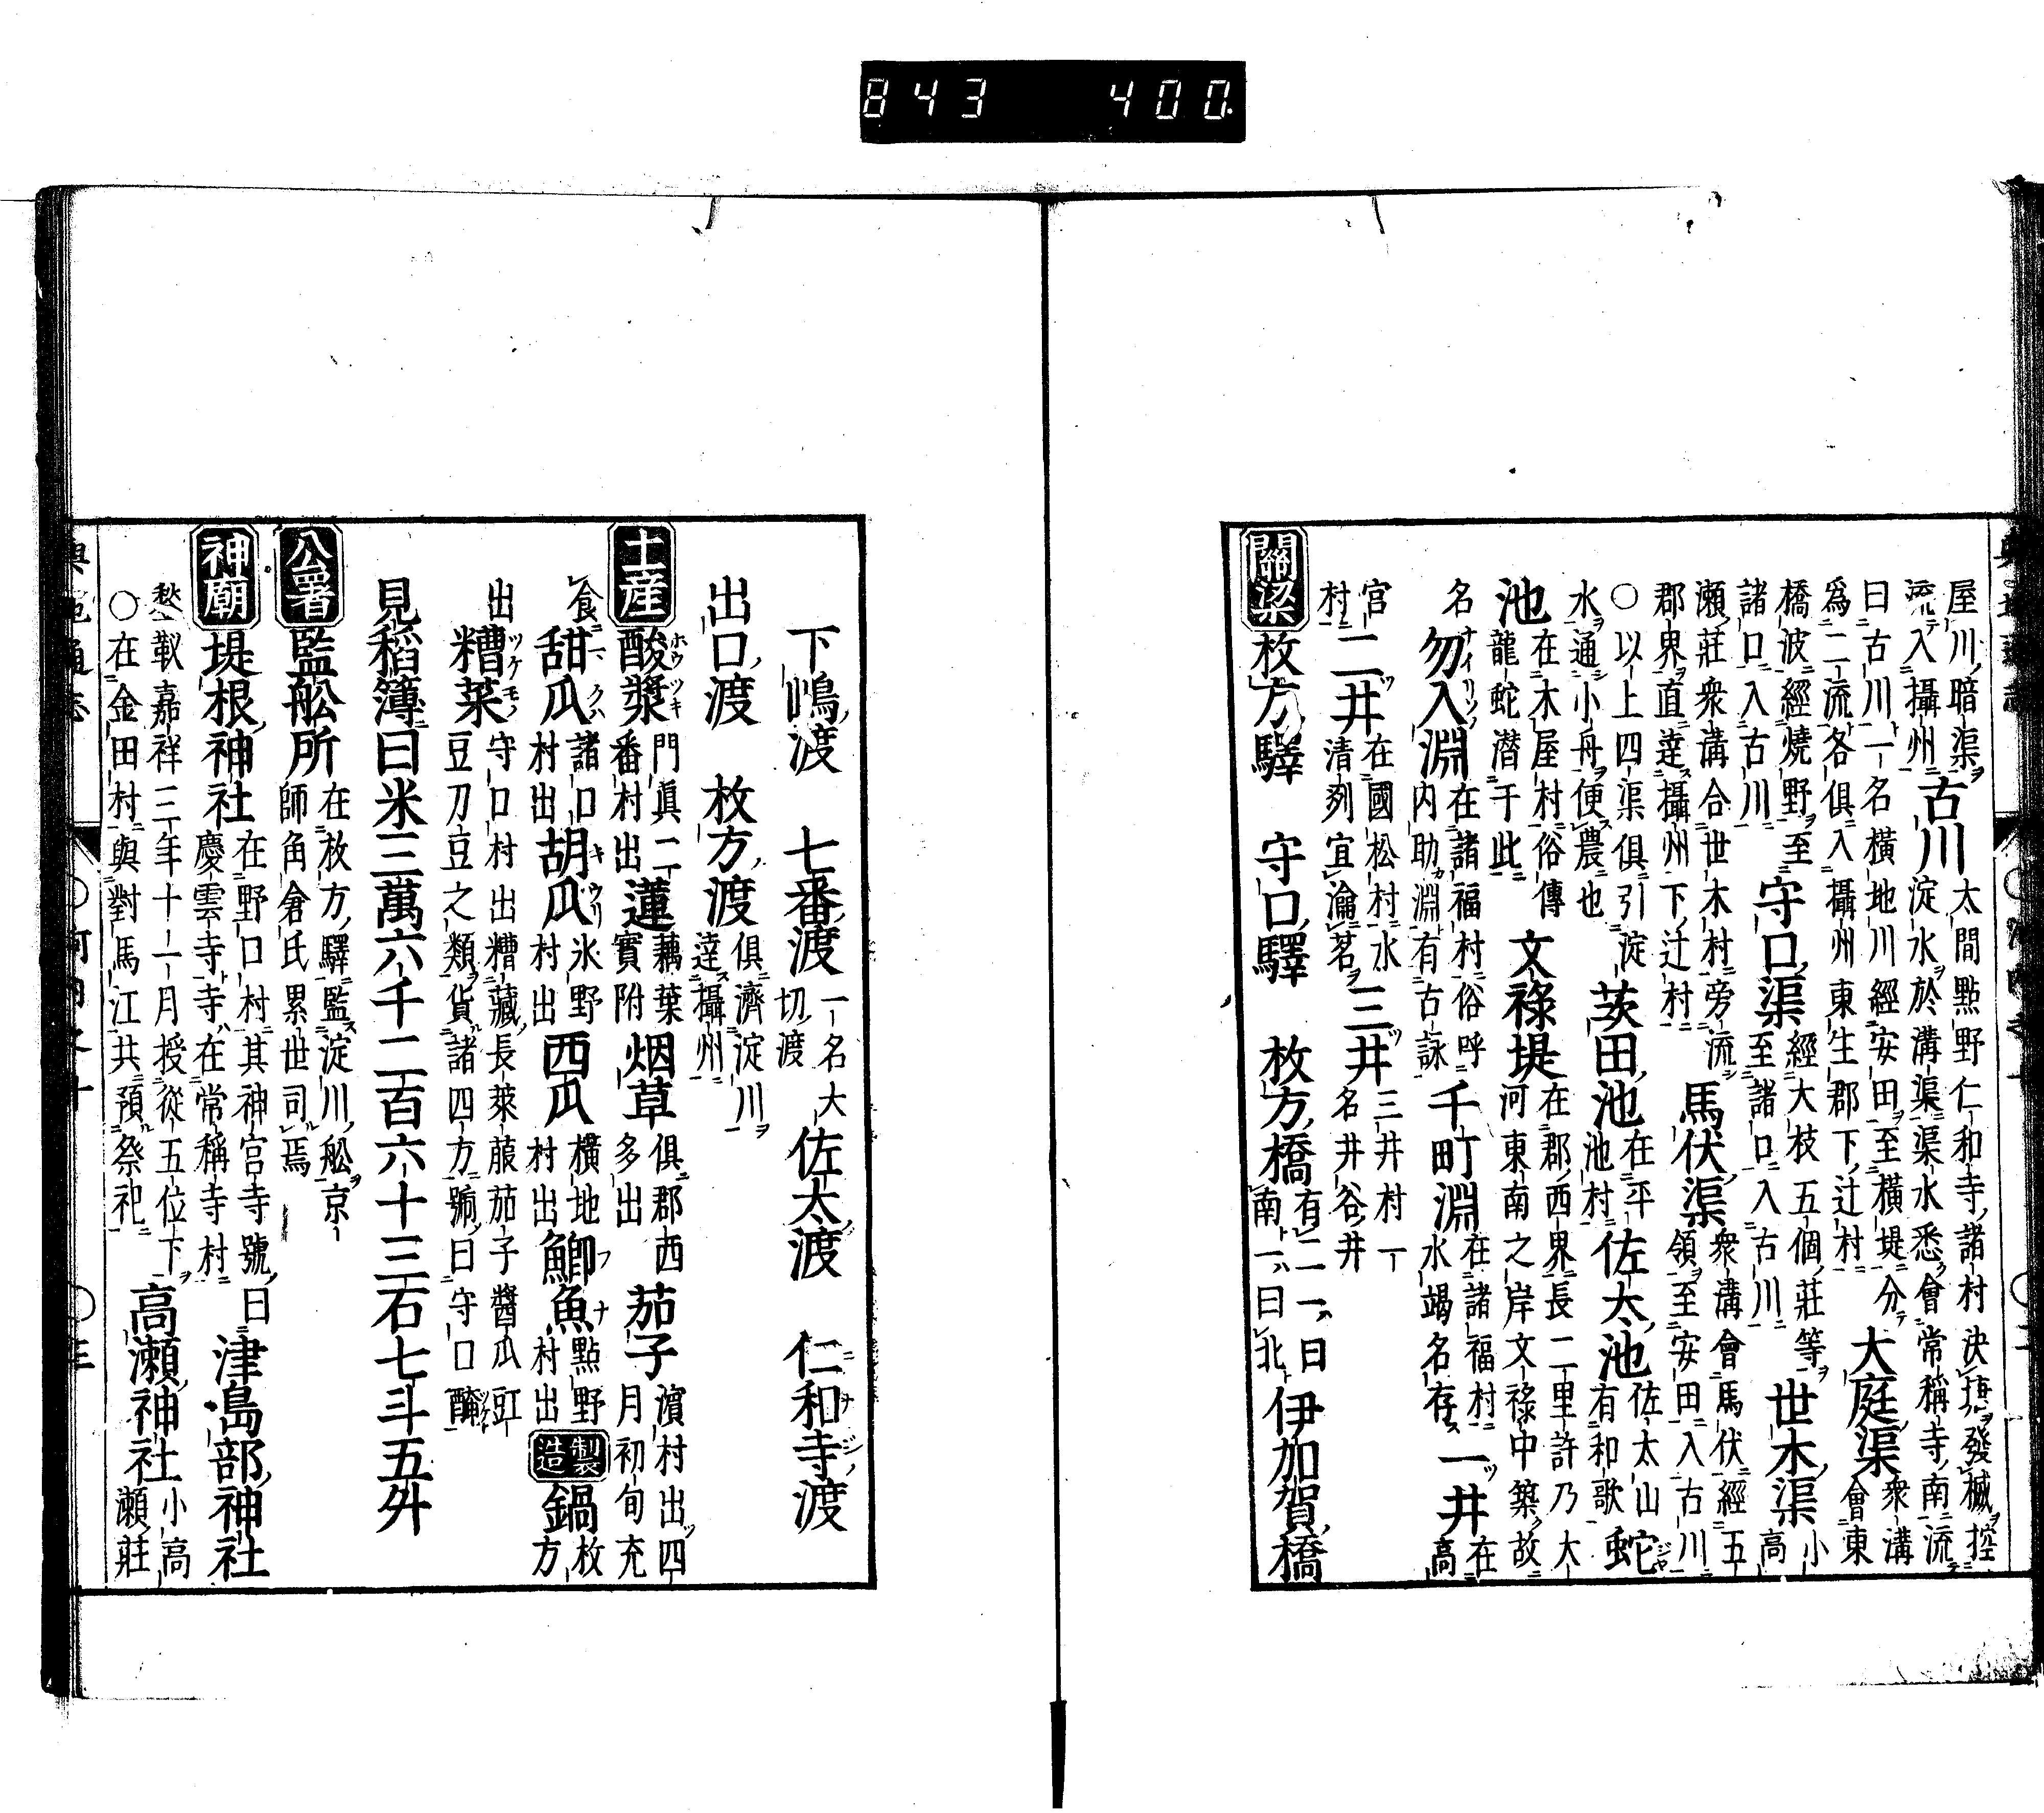 843 400
屋川暗渠古川太間點野仁和寺諸村決㨗發椷控
流入攝州淀水於溝渠渠水悉會常稱寺南流
曰古川一名橫地川經安田至橫堤分大庭渠衆溝
爲二流各俱入攝州東生郡下辻村會東
橋波經燒野至守口渠經大枝五個莊等世木渠小
諸口入古川至諸口入古川高
瀬莊衆溝合世木村旁流馬伏渠衆溝會馬伏經五
郡界直達攝州下辻村領至安田入古川
○以上四渠俱引淀茨田池在平佐太池佐太山蛇
水通小舟便農也池村有和歌
池在木屋村俗傳文祿堤在郡西界長二里許乃大
龍蛇潜于此河東南之岸文祿中築故
名勿入淵在諸福村俗呼千町淵在諸福村一井在
内助淵有古詠水竭名存高
宮二井在國松村水三井三井村一
村清冽宜瀹茗名井谷井
關梁枚方驛 守口驛 枚方橋有二一曰伊加賀橋
南一曰北
下嶋渡 七番渡一名大佐太渡 仁和寺渡
切渡
出口渡 枚方渡俱濟淀川
達攝州
土産酸漿門眞二蓮藕葉烟草俱郡西茄子濵村出四
番村出實附多出月初旬充
食甜瓜諸口胡瓜氷野西瓜橫地鯽魚點野製造鍋枚
村出村出村出村出方
出糟菜守口村出糟藏長萊菔茄子醬瓜豇
豆刀豆之類貨諸四方號曰守口醃
見稻簿曰米三萬六千二百六十三石七斗五舛
公署監舩所在枚方驛監淀川舩京
師角倉氏累世司焉
神廟堤根神社在野口村其神宮寺號曰津島部神社
慶雲寺寺在常稱寺村
○在金田村與對馬江共預祭祀高瀬神社小高
嘉祥三年十一月授從五位下瀬莊